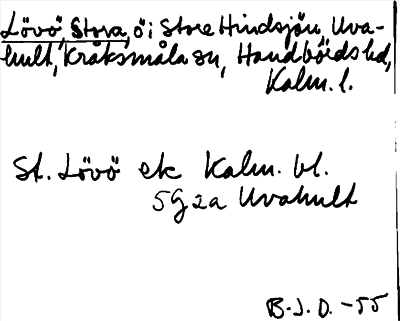 Lövö, Stora, ö i Store Hindsjön, Uva-
hult, Kråksmåla sn, Handbörds hd,
Kalm. l.
St. Lövö ek Kalm. bl.
5G2a Uvahult
B.J.D. -55